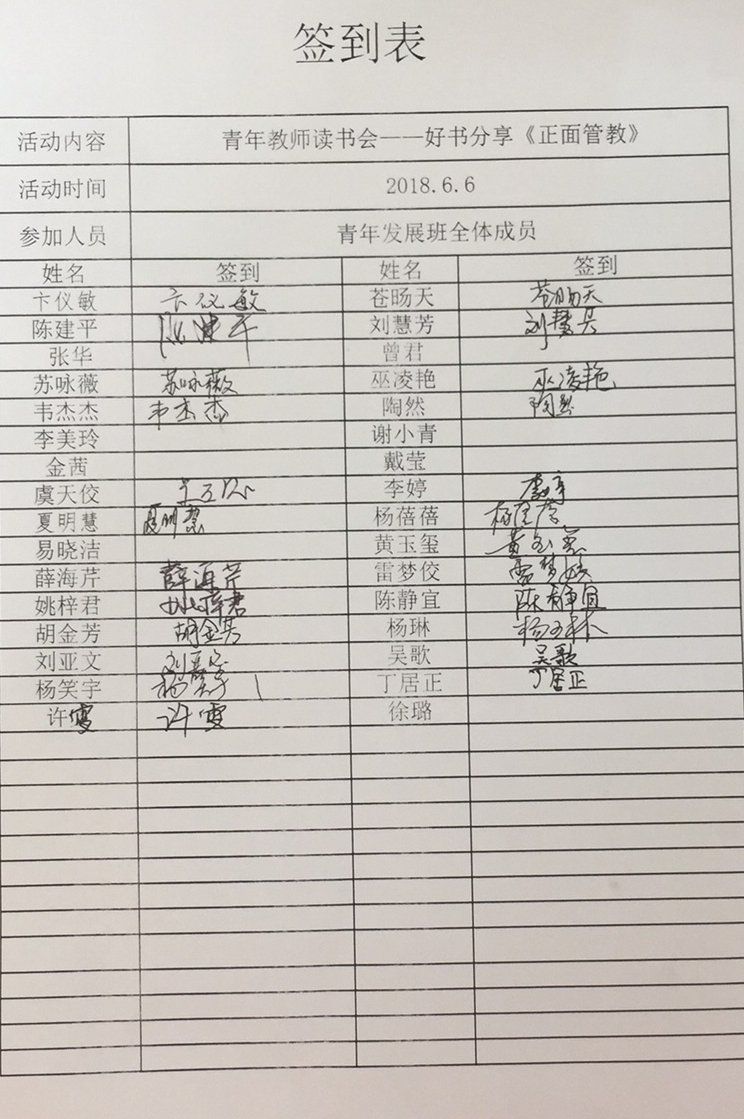 签到表
活动内容 青年教师读书会——好书分享《正面管教》
活动时间 2018.6.6
参加人员 青年发展班全体成员
姓名 签到 姓名 签到
卞仪敏 卞仪敏 苍旸天 苍旸天
陈建平 陈建平 刘慧芳 刘慧芳
张华 曾君
苏咏薇 苏咏薇 巫凌艳 巫凌艳
韦杰杰 韦杰杰 陶然 陶然
李美玲 谢小青
金茜 戴莹
虞天佼 李婷 李婷
夏明慧 夏明慧 杨蓓蓓 杨蓓蓓
易晓洁 黄玉玺 黄玉玺
薛海芹 薛海芹 雷梦佼 雷梦佼
姚梓君 姚梓君 陈静宜 陈静宜
胡金芳 胡金芳 杨琳 杨琳
刘亚文 刘亚文 吴歌 吴歌
杨笑宇 杨笑宇 丁居正 丁居正
许雯 许雯 徐璐